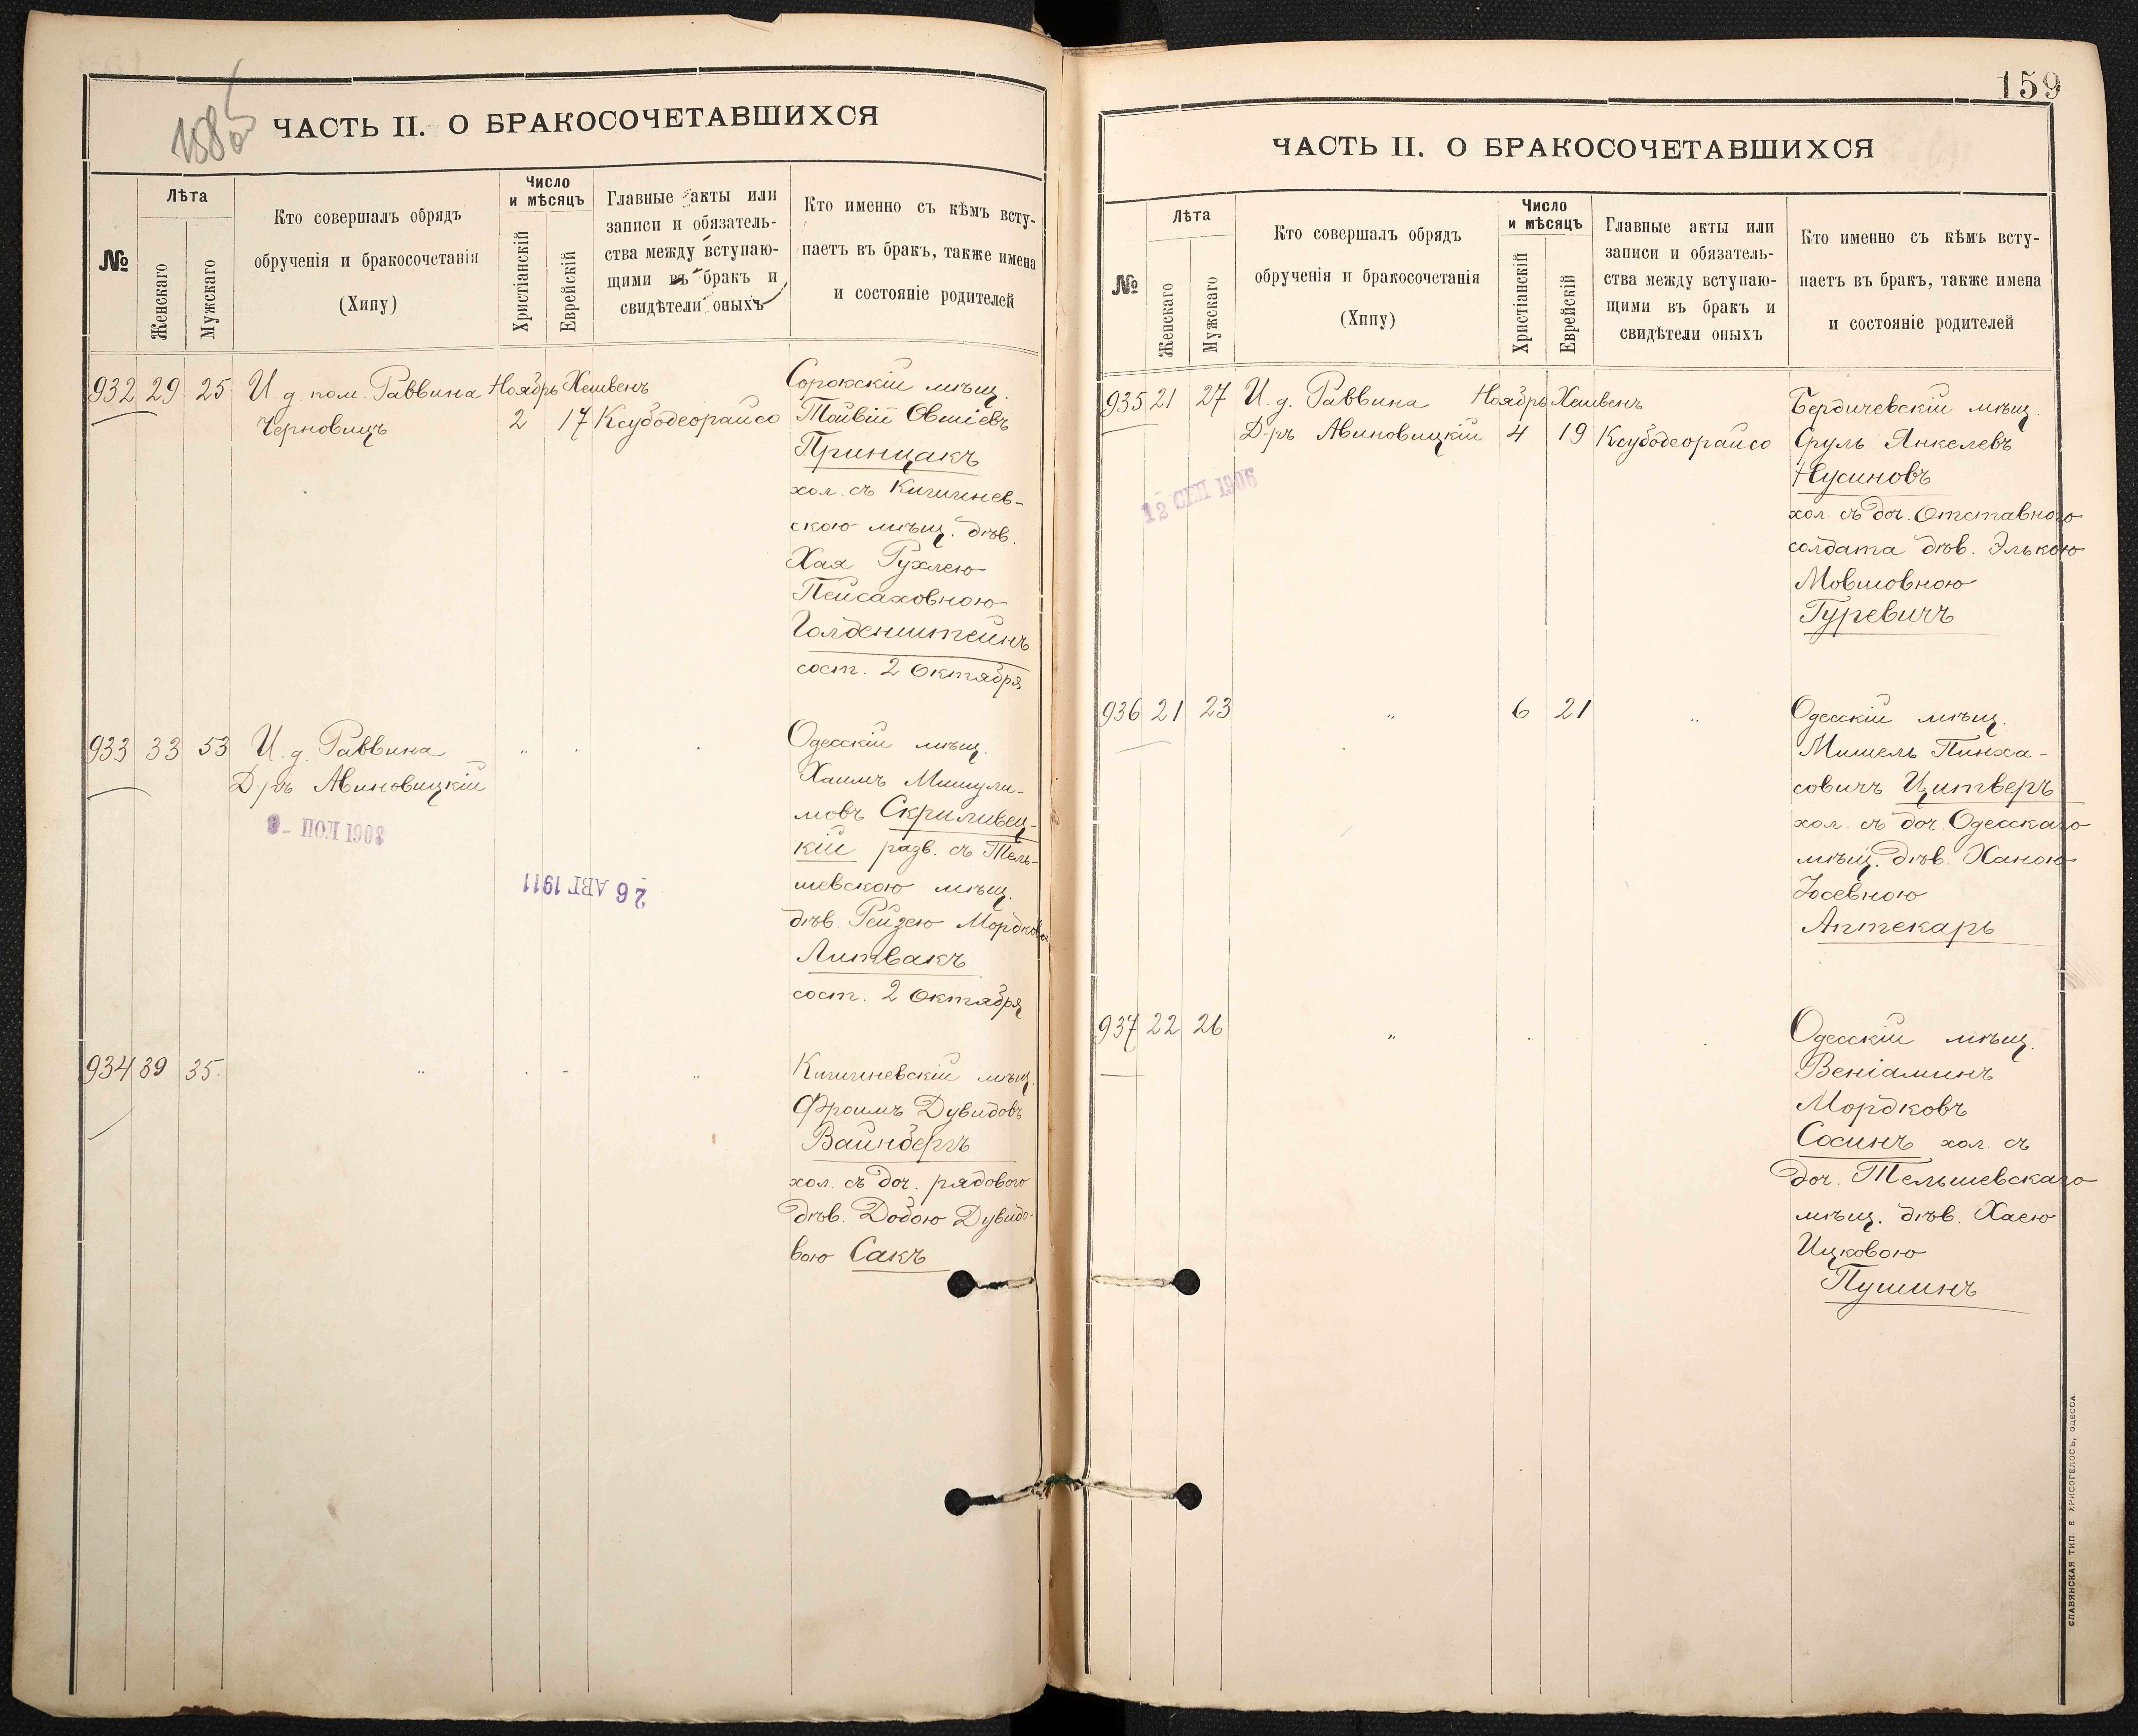 ЧАСТЬ II. О БРАКОСОЧЕТАВШИХСЯ
№
Лѣта
Женскаго
Мужскаго
Кто совершалъ обрядъ
обрученія и бракосочетанія
(Хипу)
Число
и мѣсяцъ
Христіанскій
Еврейскій
Главные акты или
записи и обязатель-
ства между вступаю-
щими въ бракъ и
свидѣтели оныхъ
Кто именно съ кѣмъ всту-
паетъ въ бракъ, также имена
и состояніе родителей
932 29 25 И. д. пом. Раввина Ноябрь Хешвенъ
Черновицъ 2 17 Ксубодеорайсо
Сорокскій мѣщ.
Тойвій Овшіевъ
Принцакъ
хол. съ Кишинев-
скою мѣщ. дѣв.
Хая Рухлею
Пейсаховною
Голденштейнъ
сост. 2 Октября
933 33 53 И. д. Раввина
Д-ръ Авиновицкій
" " "
Одесскій мѣщ.
Хаимъ Мишули-
мовъ Скриливец-
кій разв. съ Тель-
шевскою мѣщ.
дѣв. Рейзею Мордков
Литвакъ
сост. 2 Октября
26 АВГ 1911
934 39 35 " " " "
Кишиневскій мѣщ.
Фроимъ Дувидовъ
Вайнбергъ
хол. съ доч. рядового
дѣв. Добою Дувидо-
вою Сакъ
159
ЧАСТЬ II. О БРАКОСОЧЕТАВШИХСЯ
№
Лѣта
Женскаго
Мужскаго
Кто совершалъ обрядъ
обрученія и бракосочетанія
(Хипу)
Число
и мѣсяцъ
Христіанскій
Еврейскій
Главные акты или
записи и обязатель-
ства между вступаю-
щими въ бракъ и
свидѣтели оныхъ
Кто именно съ кѣмъ всту-
паетъ въ бракъ, также имена
и состояніе родителей
935 21 27 И. д. Раввина Ноябрь Хешвенъ
Д-ръ Авиновицкій 4 19 Ксубодеорайсо
12 СЕП 1906
Бердичевскій мѣщ.
Сруль Янкелевъ
Нусиновъ
хол. съ доч. Отставного
солдата дѣв. Элькою
Мовшовною
Гуревичъ
936 21 23 " 6 21 "
Одесскій мѣщ.
Мишель Пинха-
совичъ Цитверъ
хол. съ доч. Одесскаго
мѣщ. дѣв. Ханою
Іосевною
Аптекарь
937 22 26 " " "
Одесскій мѣщ.
Веніаминъ
Мордковъ
Сосинъ хол. съ
доч. Тельшевскаго
мѣщ. дѣв. Хаею
Ицковою
Пушинъ
СЛАВЯНСКАЯ ТИП. Е. ХРИСОГЕЛОСЪ, ОДЕССА.